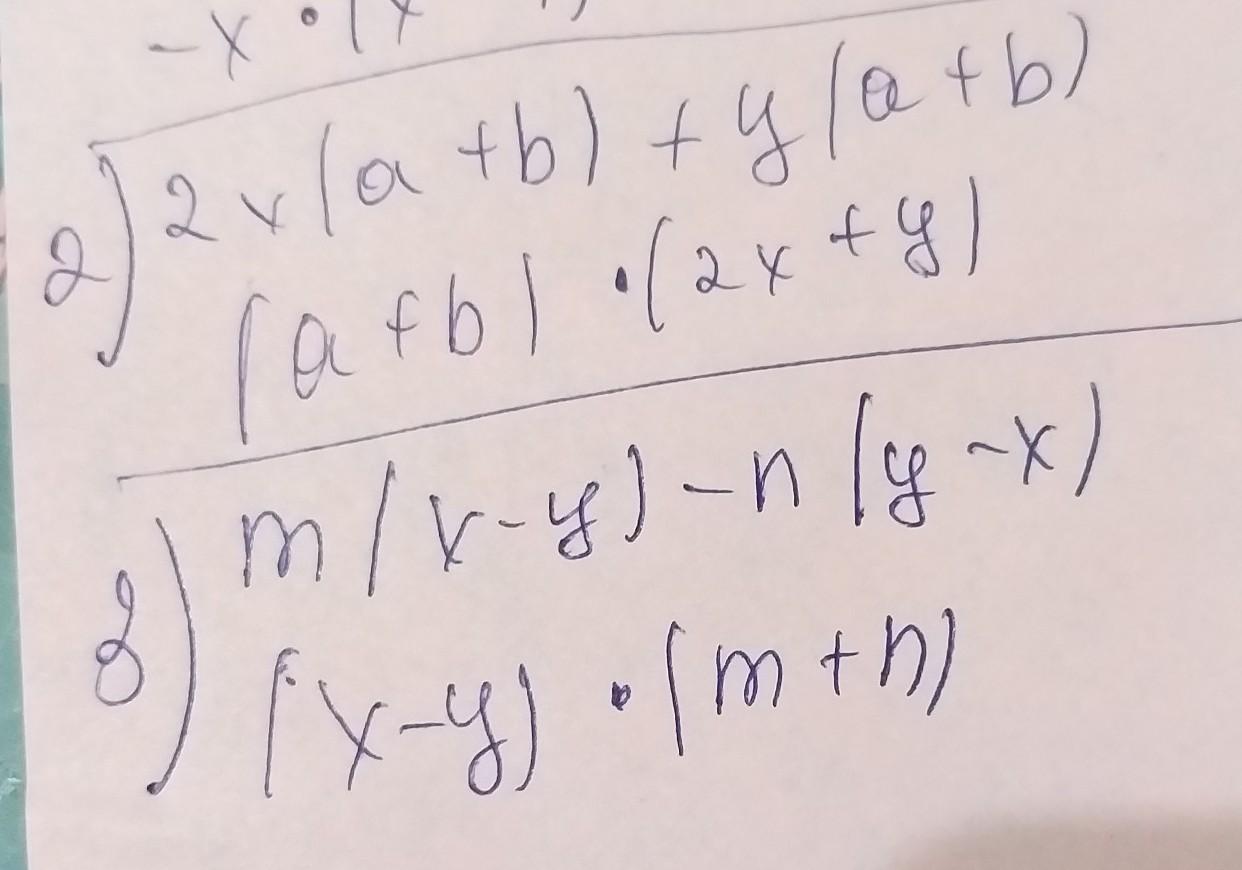 -x · (
2) 2x(a+b) + y(a+b)
(a+b) · (2x+y)
3) m(x-y) - n(y-x)
(x-y) · (m+n)